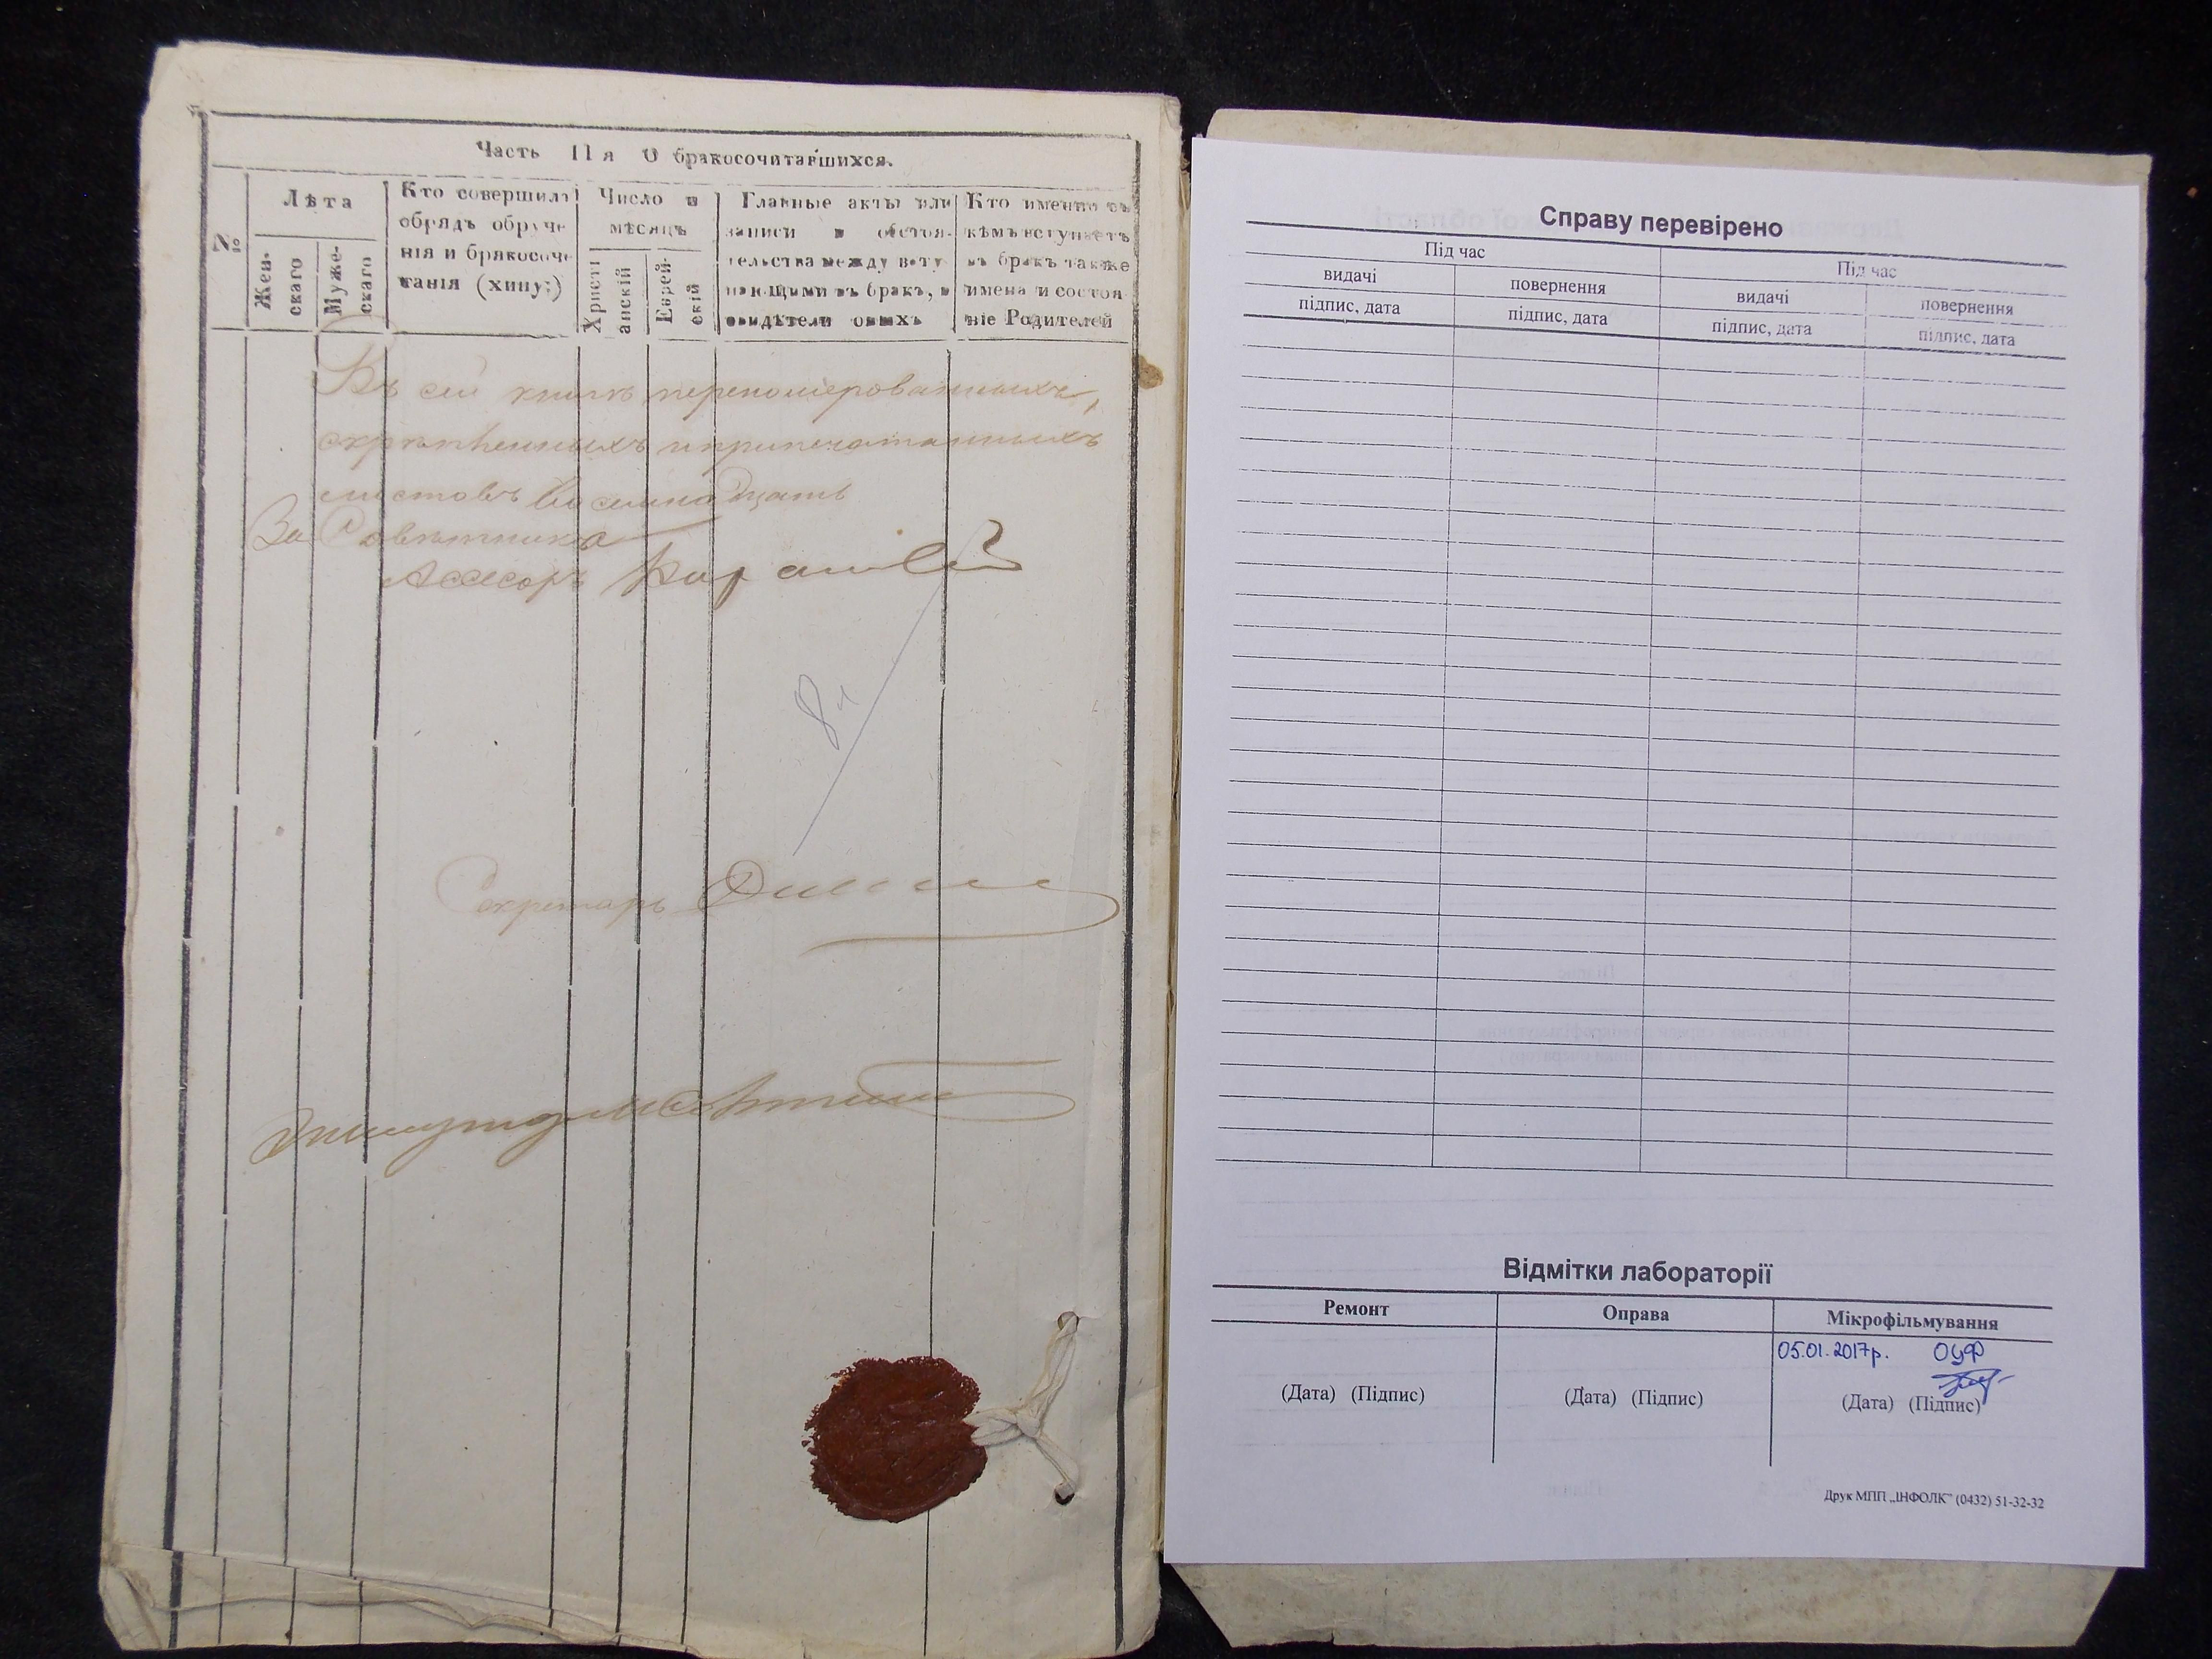 Часть II я О бракосочитавшихся.
№
Лѣта
Жен-
скаго
Муже-
скаго
Кто совершилъ
обрядъ обруче-
нія и брякосоче
танія (хипу;)
Число и
мѣсяцъ
Христі
анскій
Еврей-
скій
Главные акты или
записи и обстоя-
тельства между всту
пающими въ бракъ, и
свидѣтели оныхъ
Кто именно съ
кѣмъ вступаетъ
въ бракъ также
имена и состоя
ніе Родителей
Въ сей книгѣ переномерованныхъ,
скрѣпленныхъ и припечатанныхъ
листовъ восемнадцать
За Совѣтника
Ассесоръ
8л
Секретарь
Справу перевірено
Під час
Під час
видачі
повернення
видачі
повернення
підпис, дата
підпис, дата
підпис, дата
підпис, дата
Відмітки лабораторії
Ремонт
Оправа
Мікрофільмування
05.01.2017р. ОУФ
(Дата) (Підпис)
(Дата) (Підпис)
(Дата) (Підпис)
Друк МПП „ІНФОЛК" (0432) 51-32-32